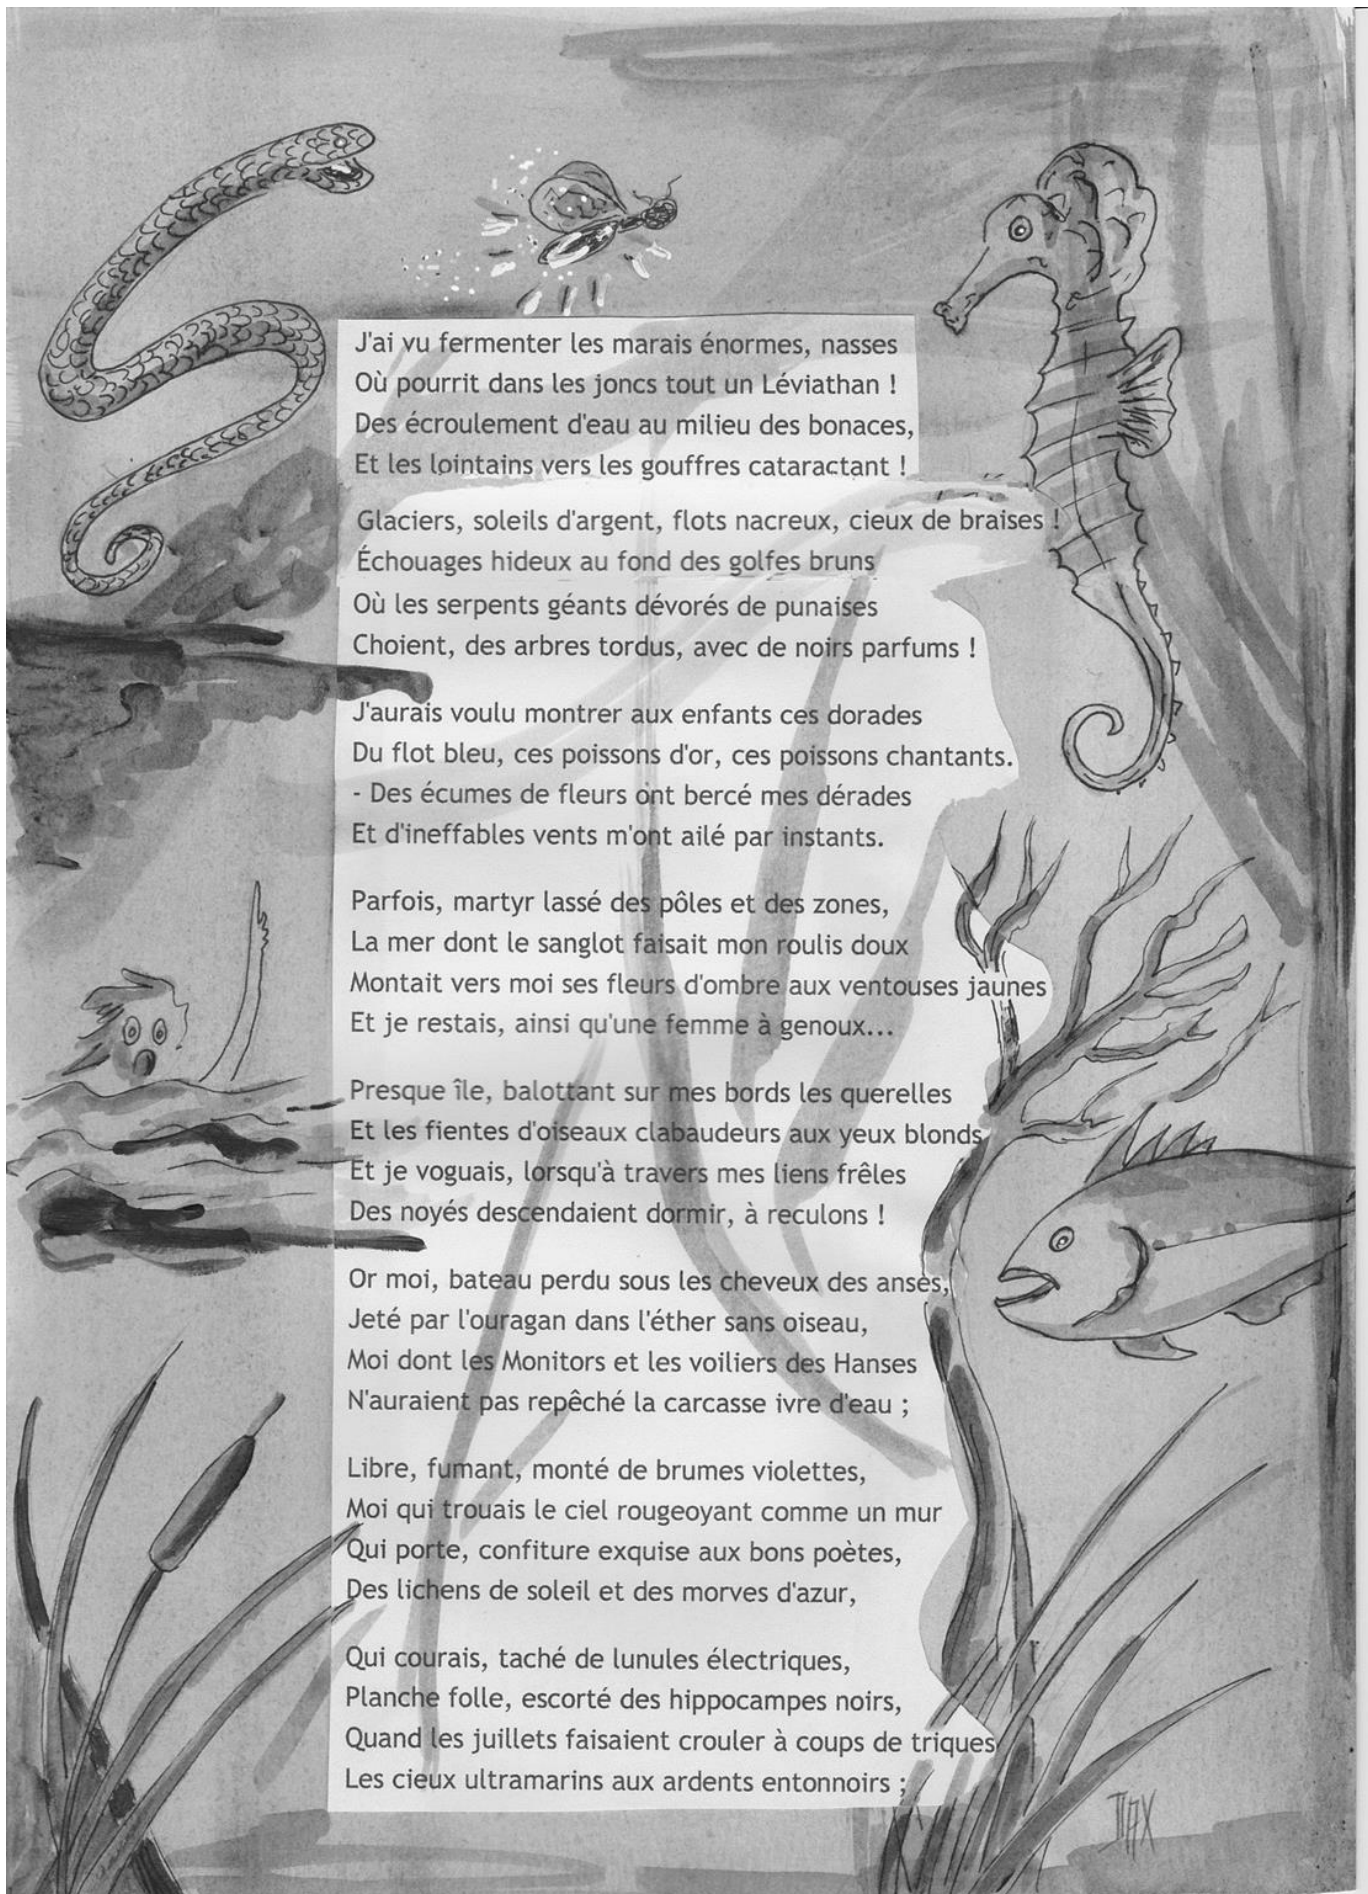 J'ai vu fermenter les marais énormes, nasses
Où pourrit dans les joncs tout un Léviathan !
Des écroulement d'eau au milieu des bonaces,
Et les lointains vers les gouffres cataractant !
Glaciers, soleils d'argent, flots nacreux, cieux de braises !
Échouages hideux au fond des golfes bruns
Où les serpents géants dévorés de punaises
Choient, des arbres tordus, avec de noirs parfums !
J'aurais voulu montrer aux enfants ces dorades
Du flot bleu, ces poissons d'or, ces poissons chantants.
- Des écumes de fleurs ont bercé mes dérades
Et d'ineffables vents m'ont ailé par instants.
Parfois, martyr lassé des pôles et des zones,
La mer dont le sanglot faisait mon roulis doux
Montait vers moi ses fleurs d'ombre aux ventouses jaunes
Et je restais, ainsi qu'une femme à genoux...
Presque île, balottant sur mes bords les querelles
Et les fientes d'oiseaux clabaudeurs aux yeux blonds
Et je voguais, lorsqu'à travers mes liens frêles
Des noyés descendaient dormir, à reculons !
Or moi, bateau perdu sous les cheveux des anses,
Jeté par l'ouragan dans l'éther sans oiseau,
Moi dont les Monitors et les voiliers des Hanses
N'auraient pas repêché la carcasse ivre d'eau ;
Libre, fumant, monté de brumes violettes,
Moi qui trouais le ciel rougeoyant comme un mur
Qui porte, confiture exquise aux bons poètes,
Des lichens de soleil et des morves d'azur,
Qui courais, taché de lunules électriques,
Planche folle, escorté des hippocampes noirs,
Quand les juillets faisaient crouler à coups de triques
Les cieux ultramarins aux ardents entonnoirs ;